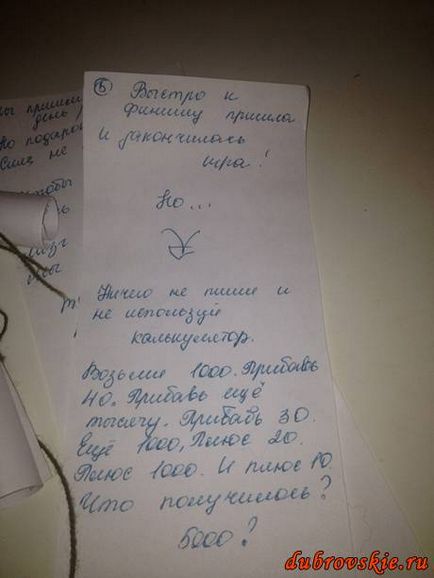 день
но подаро
5 Быстро к
финишу пришла
И закончилась
игра!
Но...
Ничего не пиши и
не используй
калькулятор.
Возьми 1000. Прибавь
40. Прибавь ещё
тысячу. Прибавь 30.
Ещё 1000, Плюс 20.
Плюс 1000. И плюс 10.
Что получилось?
5000?
dubrovskie.ru